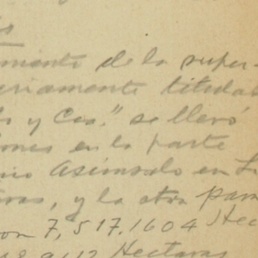 amente de la super-
eriamente titulad
s y Cos." se llevó
ones en la parte
rio Asimado en L
ras, y la otra para
on 7,517.1604 Hec
Hectaras